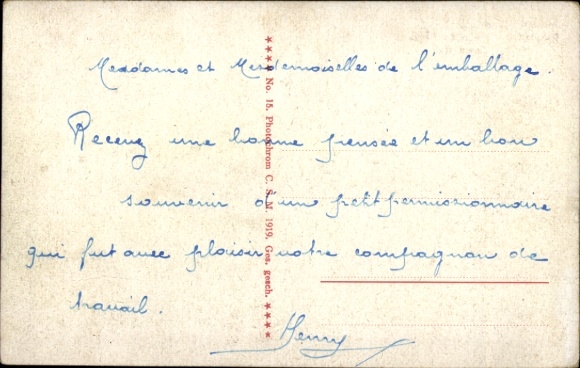 Mesdames et Mesdemoiselles de l'emballage.
Recevez une bonne pensée et un bon
souvenir d'un petit permissionnaire
qui fut avec plaisir votre compagnon de
travail.
Henry
★★★★ No. 15. Photochrom C. S. M. 1919. Ges. gesch. ★★★★